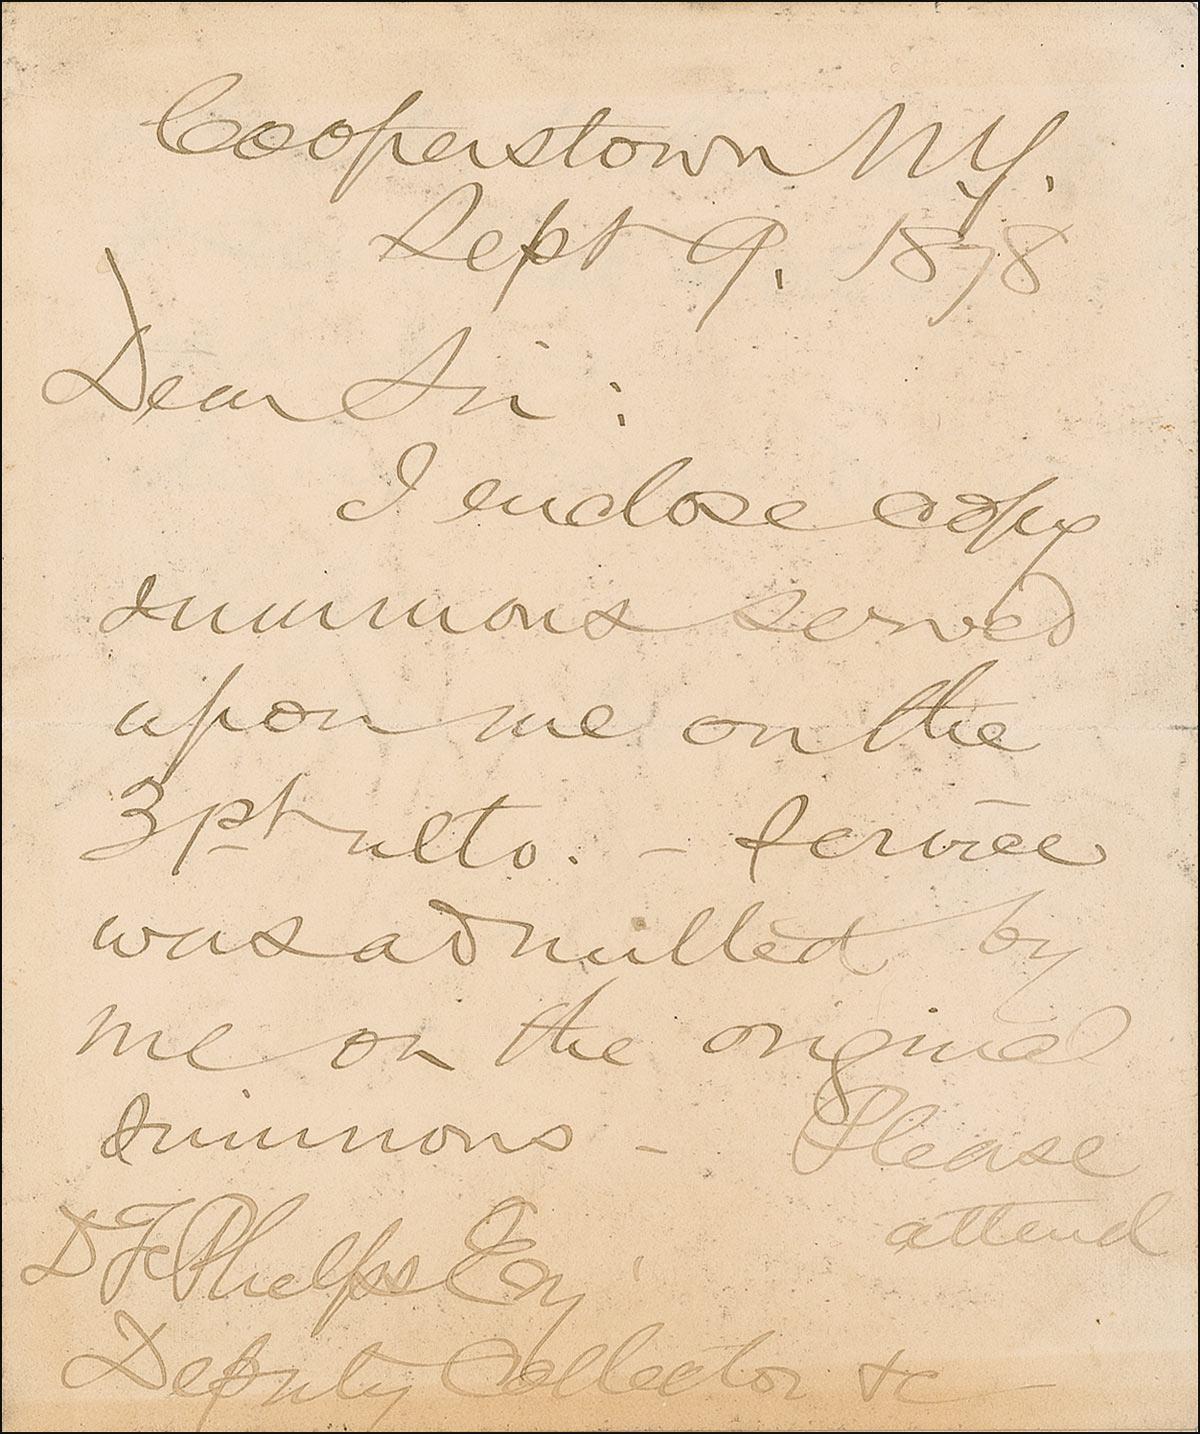 Cooperstown N.Y.
Sept 9. 1878
Dear Sir:
I enclose copy
summons served
upon me on the
ulto. - Service
was admitted by
me on the original
summons - Please
attend
D F Phelps Esq
Deputy Collector &c -